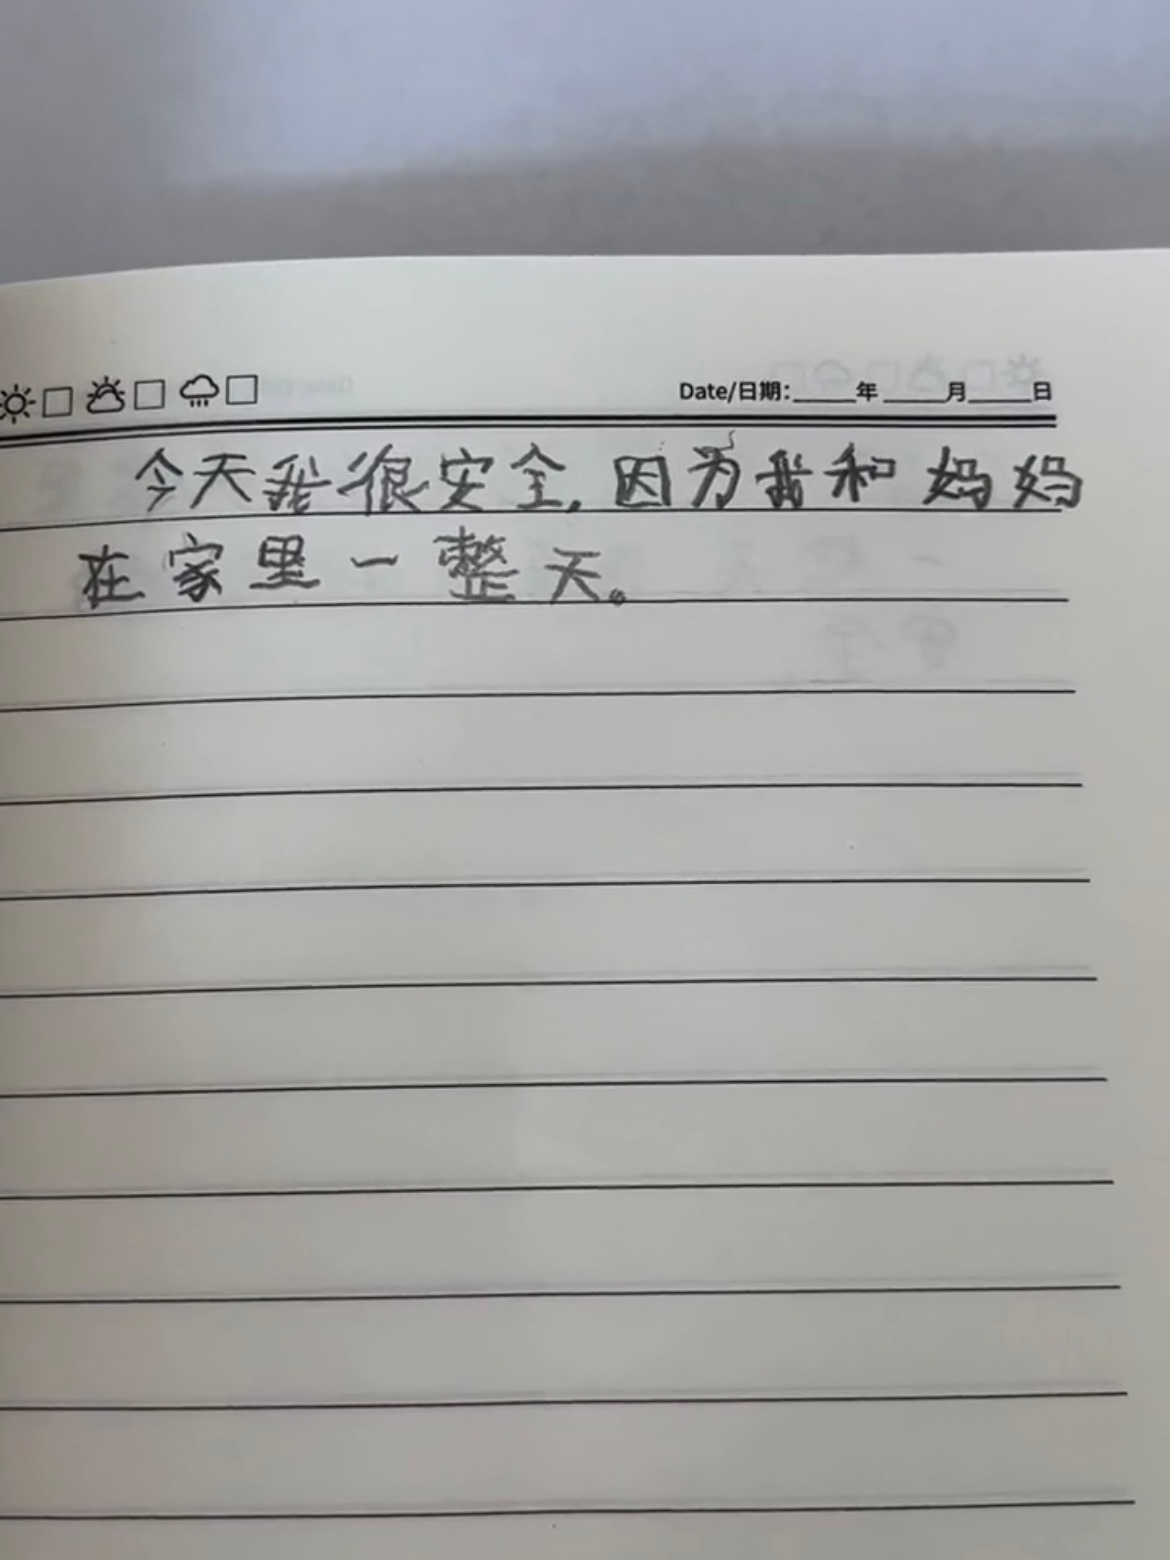 Date/日期：_____年_____月_____日
今天我很安全，因为我和妈妈
在家里一整天。